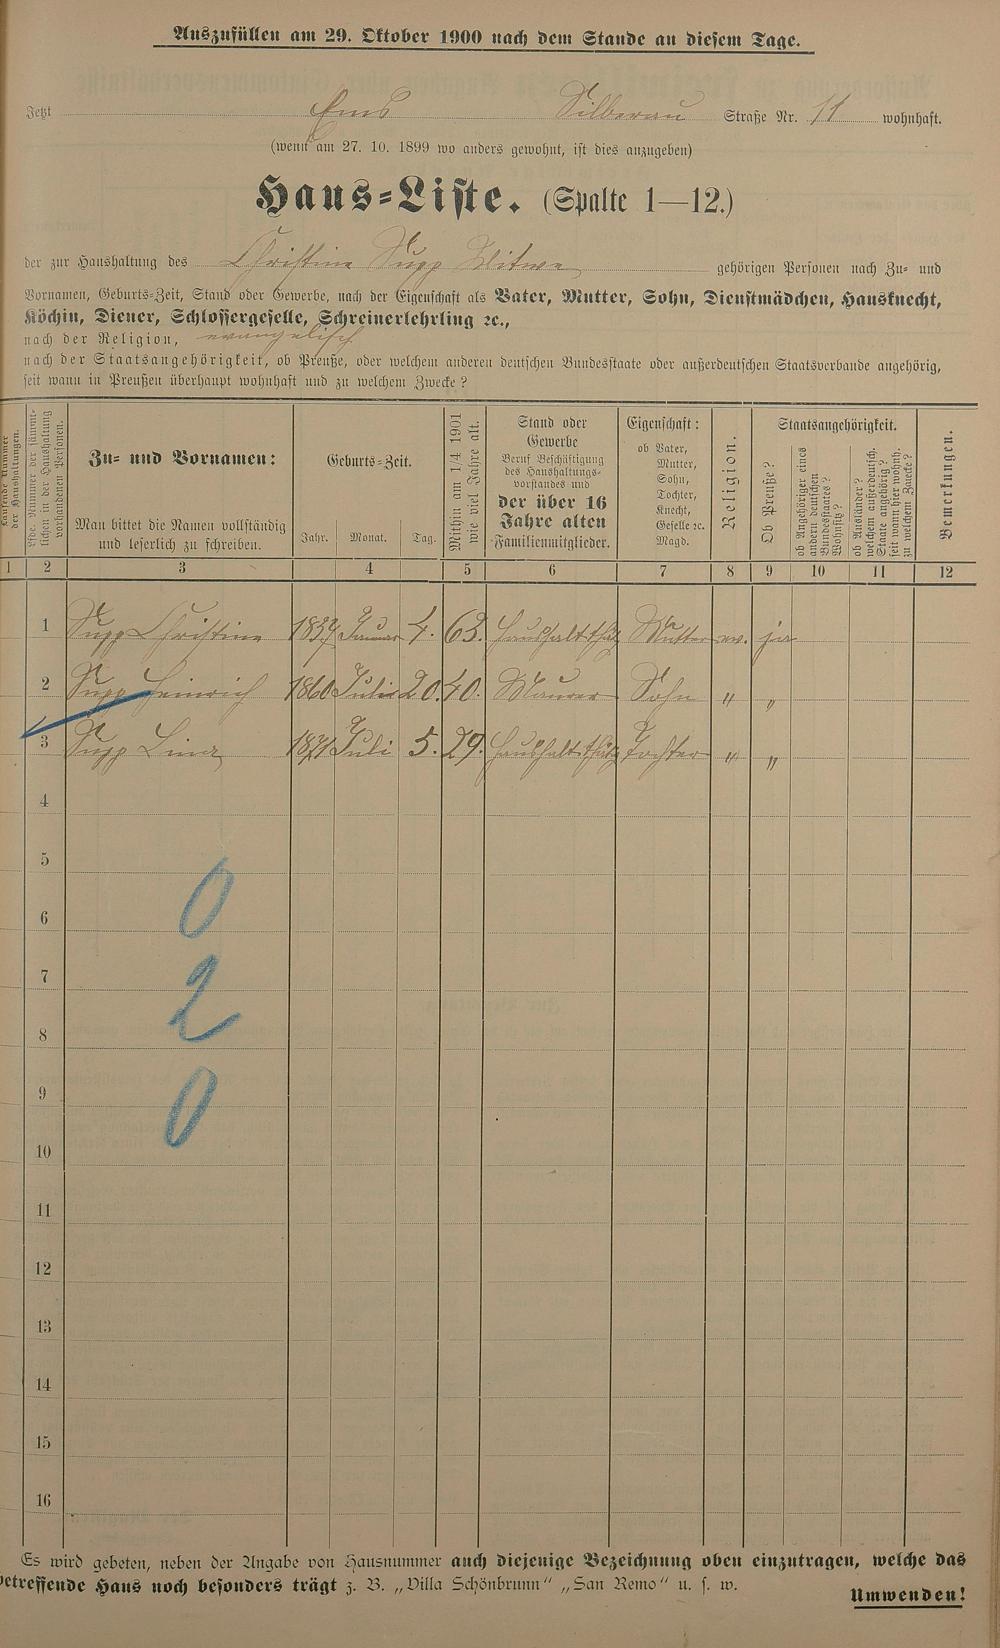 Auszufüllen am 29. Oktober 1900 nach dem Stande an diesem Tage.
Jetzt Ems Silberau Straße Nr. 11 wohnhaft.
(wenn am 27. 10. 1899 wo anders gewohnt, ist dies anzugeben)
Haus-Liste. (Spalte 1—12.)
der zur Haushaltung des Christine Supp Witwe gehörigen Personen nach Zu- und
Vornamen, Geburts-Zeit, Stand oder Gewerbe, nach der Eigenschaft als Vater, Mutter, Sohn, Dienstmädchen, Hausknecht,
Köchin, Diener, Schlossergeselle, Schreinerlehrling ꝛc.,
nach der Religion, evangelisch
nach der Staatsangehörigkeit, ob Preuße, oder welchem anderen deutschen Bundesstaate oder außerdeutschen Staatsverbande angehörig,
seit wann in Preußen überhaupt wohnhaft und zu welchem Zwecke?
Laufende Nummer der Haushaltungen.
Lfde. Nummer der sämmtlichen in der Haushaltung vorhandenen Personen.
Zu- und Vornamen:
Man bittet die Namen vollständig
und leserlich zu schreiben.
Geburts-Zeit.
Jahr. Monat. Tag.
Mithin am 1/4 1901
wie viel Jahre alt.
Stand oder
Gewerbe
Beruf Beschäftigung
des Haushaltungs-
vorstandes und
der über 16
Jahre alten
Familienmitglieder.
Eigenschaft:
ob Vater,
Mutter,
Sohn,
Tochter,
Knecht,
Geselle ꝛc.
Magd.
Religion.
Staatsangehörigkeit.
Ob Preuße?
ob Angehöriger eines
anderen deutschen
Bundesstaates?
Wohnsitz?
ob Ausländer?
welchem außerdeutsch.
Staate angehörig?
seit wann hier wohnh.
zu welchem Zwecke?
Bemerkungen.
1 2 3 4 5 6 7 8 9 10 11 12
1 Supp Christine 1837 Januar 4. 63. Haushaltthätg Mutter ev. ja
2 Supp Heinrich 1860 Julie 20. 40. Maurer Sohn " "
3 Supp Lina 1871 Juli 5. 29. Haushaltsthätg Tochter " "
4
5
0
6
7
2
8
9
0
10
11
12
13
14
15
16
Es wird gebeten, neben der Angabe von Hausnummer auch diejenige Bezeichnung oben einzutragen, welche das
betreffende Haus noch besonders trägt z. B. „Villa Schönbrunn" „San Remo" u. s. w.
Umwenden!